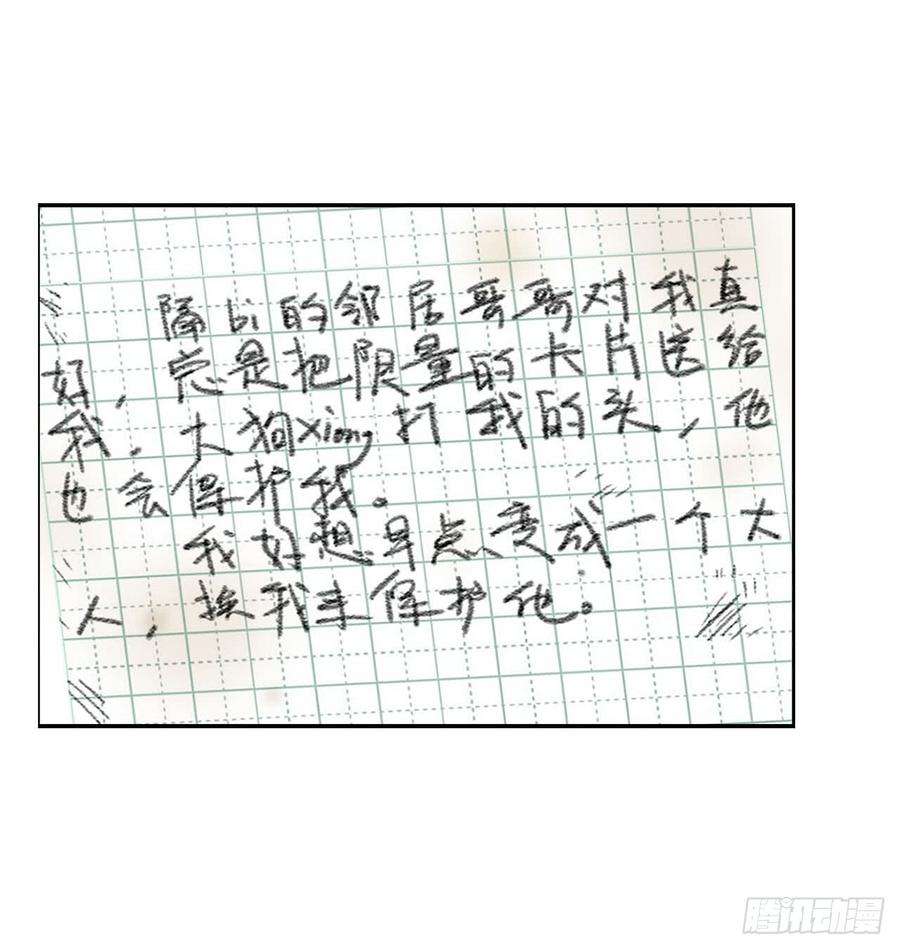 隔bi的邻居哥哥对我真
好，总是把限量的卡片送给
我，大狗xiong打我的头，他
也会保护我。
我好想早点变成一个大
人，换我来保护他。
腾讯动漫